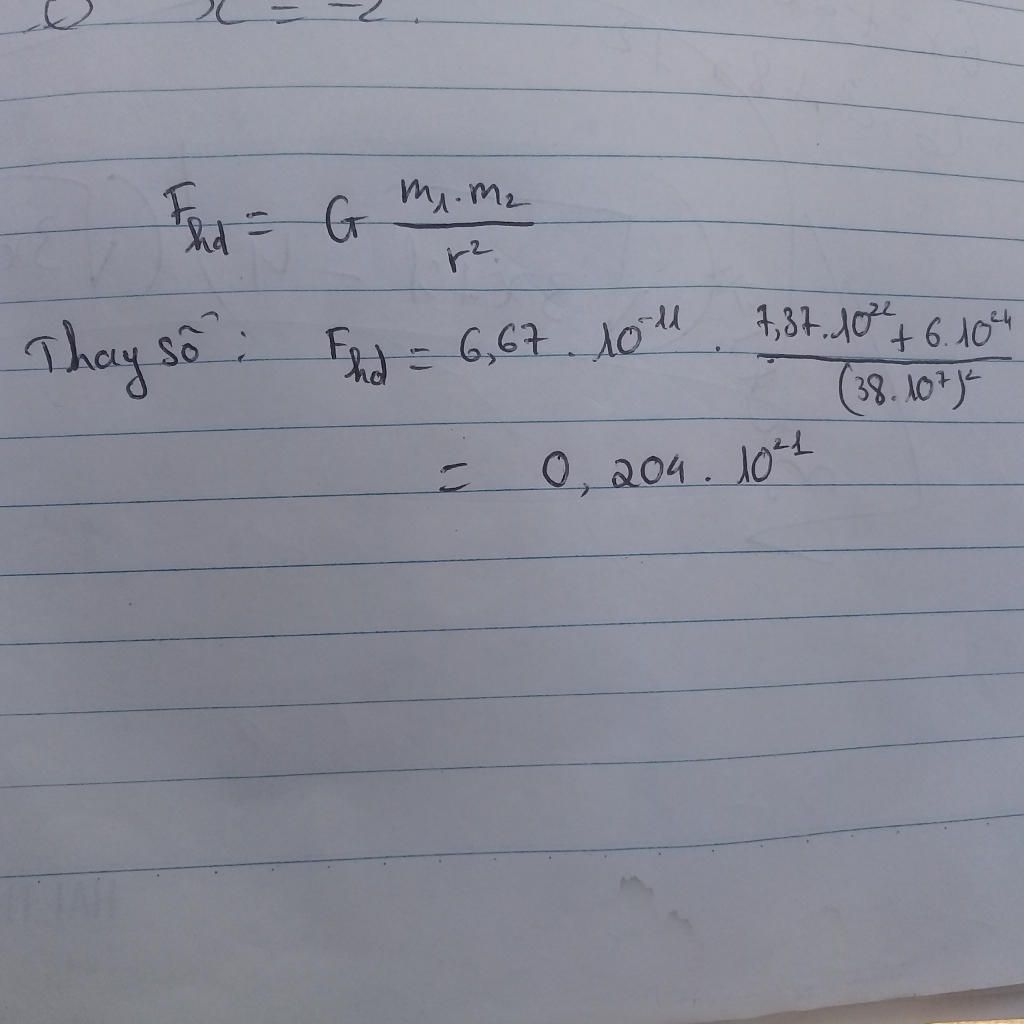 x = -2.
F_hd = G \frac{m_1 . m_2}{r^2}
Thay số : F_hd = 6,67 . 10^{-11} . \frac{7,37.10^{22} + 6.10^{24}}{(38.10^7)^2}
= 0, 204 . 10^{21}